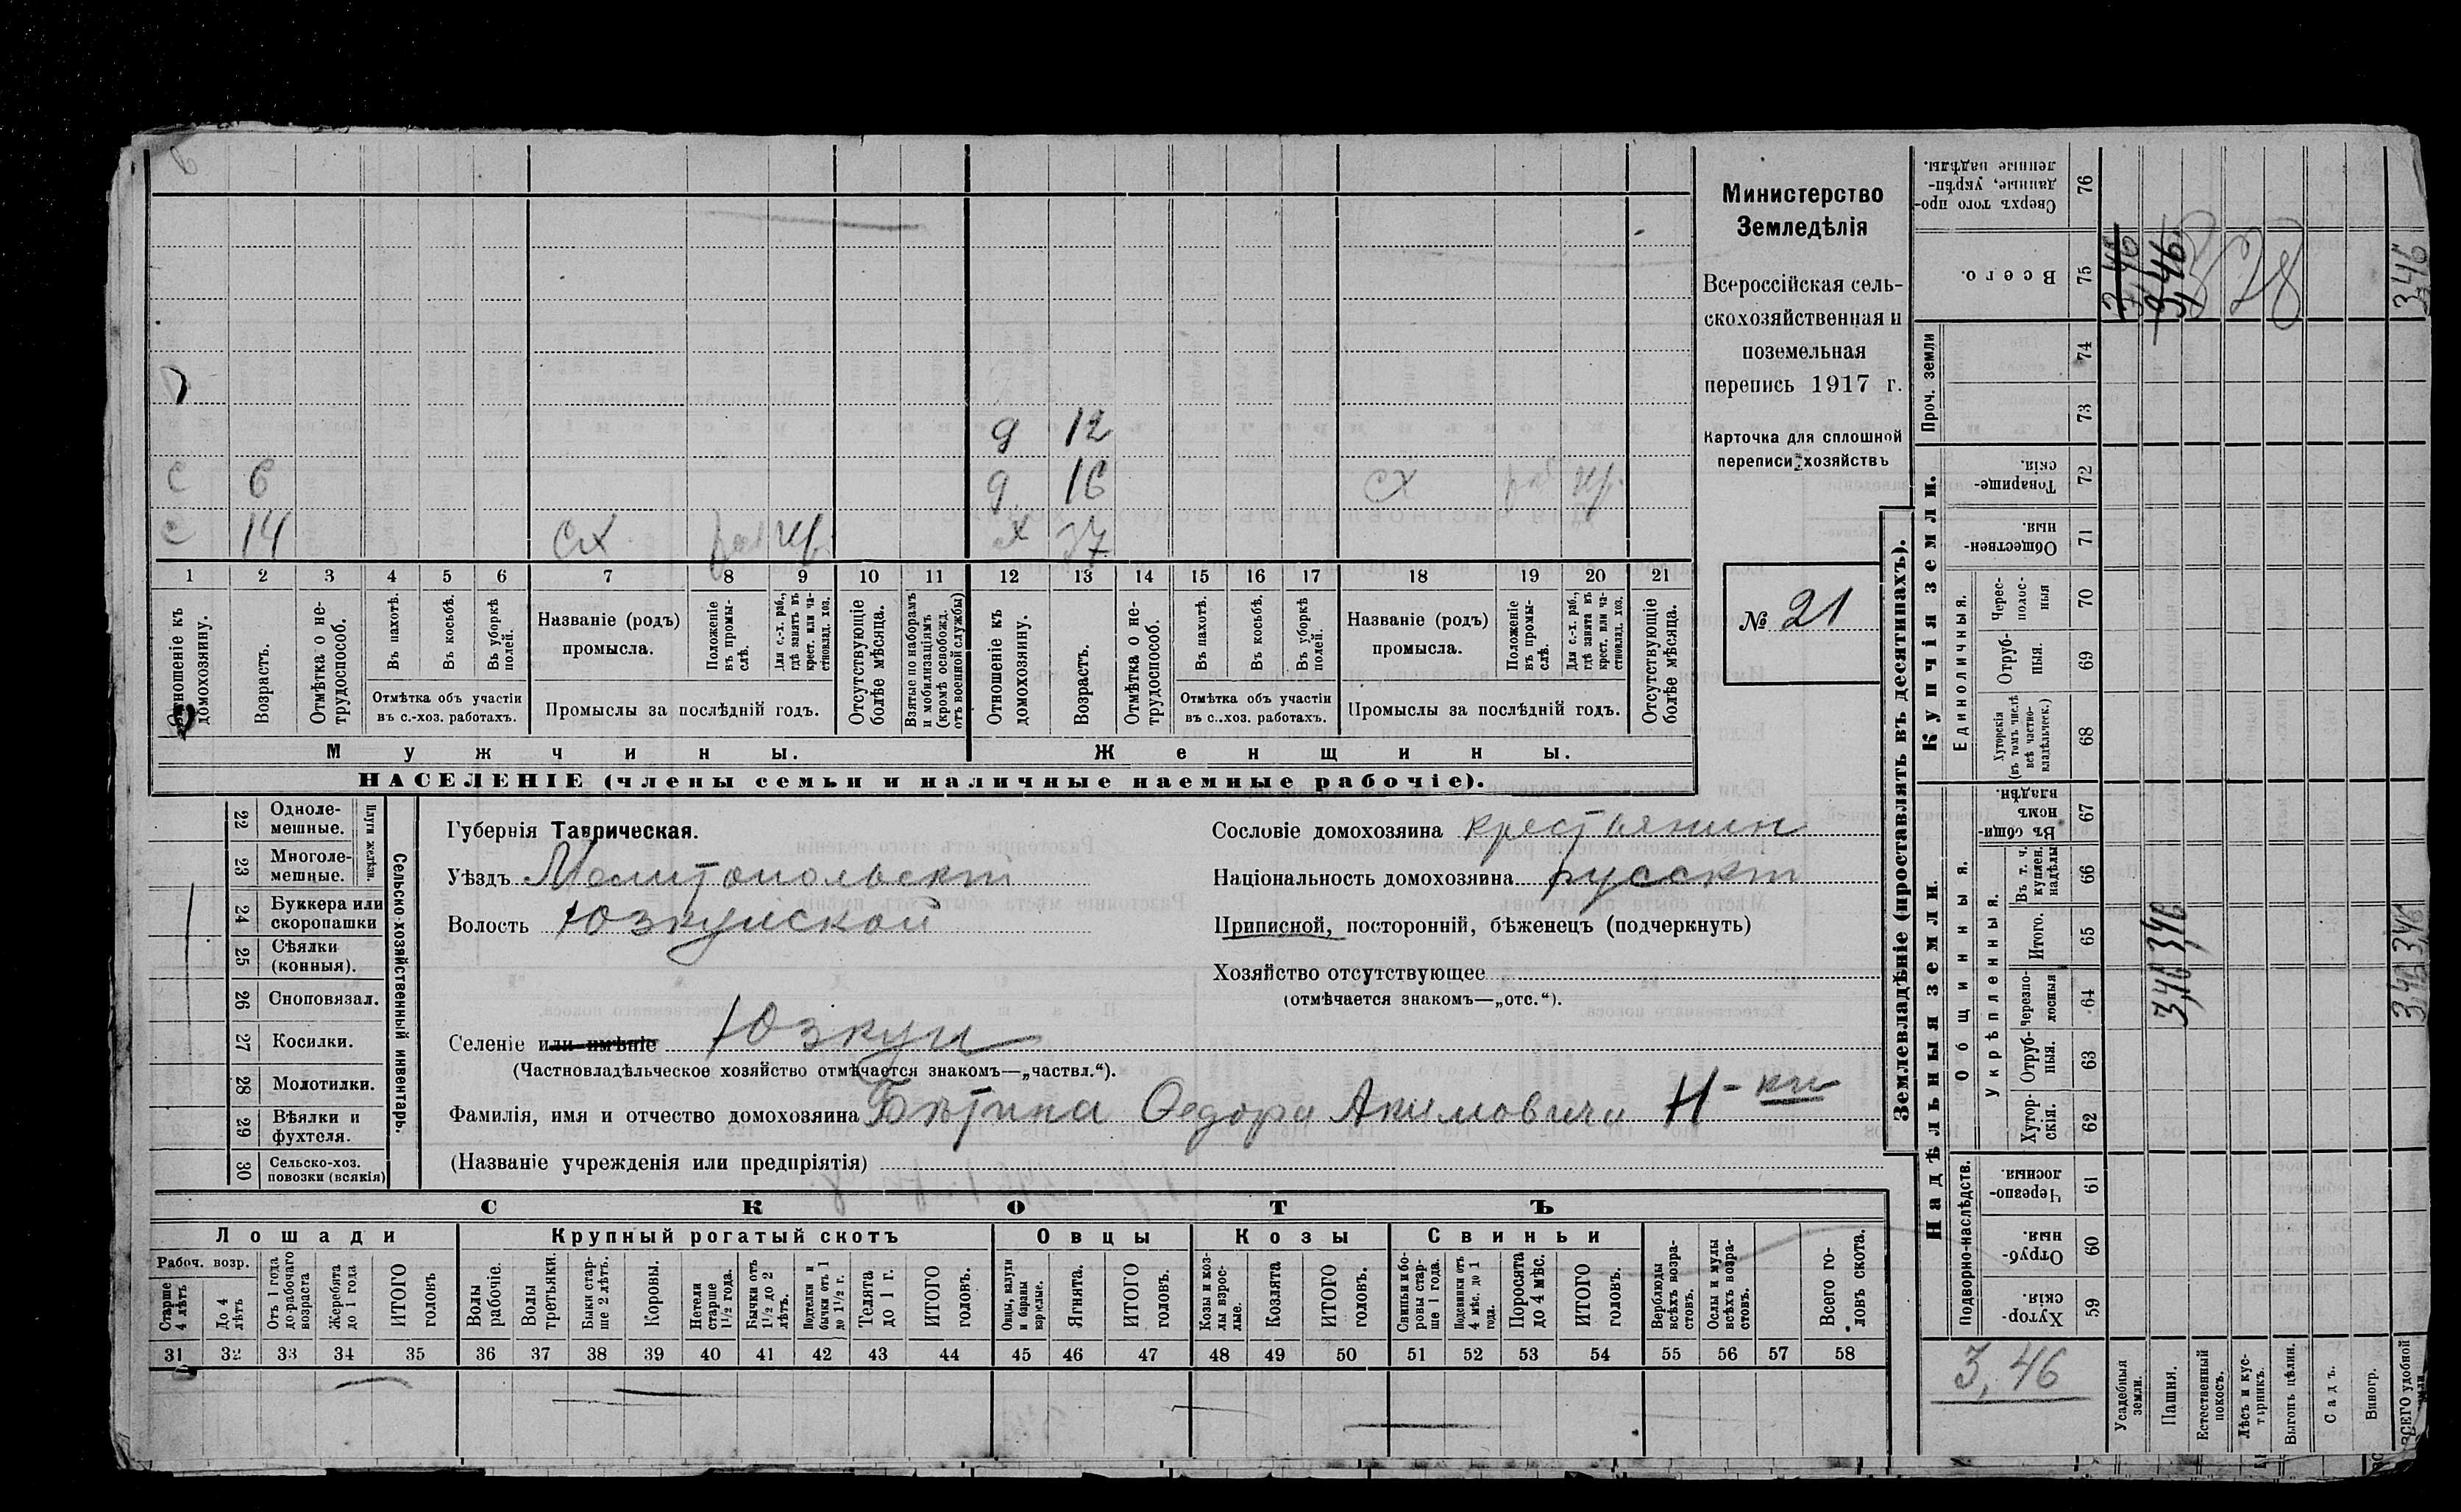 Министерство
Земледѣлія
Всероссійская сель-
скохозяйственная и
поземельная
перепись 1917 г.
Карточка для сплошной
переписи хозяйствъ
№ 21
д 12
с 6 д 16 сх раб кр.
с 14 сх раб кр х 37
1 2 3 4 5 6 7 8 9 10 11 12 13 14 15 16 17 18 19 20 21
Отношеніе къ домохозяину.
Возрастъ.
Отмѣтка о не-трудоспособ.
Въ пахотѣ.
Въ косьбѣ.
Въ уборкѣ полей.
Отмѣтка объ участіи
въ с.-хоз. работахъ.
Названіе (родъ)
промысла.
Положеніе въ промы-слѣ.
Для с.-х. раб., гдѣ занятъ въ крест. или ча-стновлад. хоз.
Промыслы за послѣдній годъ.
Отсутствующіе болѣе мѣсяца.
Взятые по наборамъ и мобилизаціямъ (кромѣ освобожд. отъ военной службы)
Отношеніе къ домохозяину.
Возрастъ.
Отмѣтка о не-трудоспособ.
Въ пахотѣ.
Въ косьбѣ.
Въ уборкѣ полей.
Отмѣтка объ участіи
въ с.-хоз. работахъ.
Названіе (родъ)
промысла.
Положеніе въ промы-слѣ.
Для с.-х. раб., гдѣ занята въ крест. или ча-стновлад. хоз.
Промыслы за послѣдній годъ.
Отсутствующіе болѣе мѣсяца.
Мужчины. Женщины.
НАСЕЛЕНІЕ (члены семьи и наличные наемные рабочіе).
Сельско-хозяйственный инвентарь.
Плуги желѣзн.
22 Одноле-мешные.
23 Многоле-мешные.
24 Буккера или скоропашки
25 Сѣялки (конныя).
26 Сноповязал.
27 Косилки.
28 Молотилки.
29 Вѣялки и фухтеля.
30 Сельско-хоз. повозки (всякія)
Губернія Таврическая.
Уѣздъ Мелитопольскій
Волость Юзкуйской
Селеніе или имѣніе Юзкуи
(Частновладѣльческое хозяйство отмѣчается знакомъ—„частвл.“).
Фамилія, имя и отчество домохозяина Бѣтина Федора Акимовича Н-ки
(Названіе учрежденія или предпріятія)
Сословіе домохозяина крестьянин
Національность домохозяина русскій
Приписной, посторонній, бѣженецъ (подчеркнуть)
Хозяйство отсутствующее
(отмѣчается знакомъ—„отс.“).
СКОТЪ
Лошади Крупный рогатый скотъ Овцы Козы Свиньи
Рабоч. возр.
Старше 4 лѣтъ
До 4 лѣтъ
Отъ 1 года до рабочаго возраста
Жеребята до 1 года
ИТОГО головъ
Волы рабочіе.
Волы третьяки.
Быки стар-ше 2 лѣтъ.
Коровы.
Нетели старше 1½ года.
Бычки отъ 1½ до 2 лѣтъ.
Подтелки и бычки отъ 1 до 1½ г.
Телята до 1 г.
ИТОГО головъ.
Овцы, валухи и бараны взрослые.
Ягнята.
ИТОГО головъ.
Козы и коз-лы взрос-лые.
Козлята
ИТОГО головъ.
Свиньи и бо-ровы стар-ше 1 года.
Подсвинки отъ 4 мѣс. до 1 года.
Поросята до 4 мѣс.
ИТОГО головъ.
Верблюды всѣхъ возра-стовъ.
Ослы и мулы всѣхъ возра-стовъ.
Всего го-ловъ скота.
31 32 33 34 35 36 37 38 39 40 41 42 43 44 45 46 47 48 49 50 51 52 53 54 55 56 57 58
Землевладѣніе (проставлять въ десятинахъ).
Надѣльныя земли. Купчія земли. Проч. земли
Подворно-наслѣдств.
Общинныя.
Укрѣпленныя.
Единоличныя.
59 Хутор-скія.
60 Отруб-ныя.
61 Черезпо-лосныя.
62 Хутор-скія.
63 Отруб-ныя.
64 Черезпо-лосныя
65 Итого.
66 Въ т. ч. куплен. надѣлы
67 Въ общи-номъ владѣн.
68 Хуторскія (въ томъ числѣ всѣ частно-владѣльческ.)
69 Отруб-ныя.
70 Черес-полос-ныя
71 Обществен-ныя.
72 Товарище-скія.
73
74
75 Всего.
76 Сверхъ того про-данные, укрѣп-ленные надѣлы.
3,46
Усадебныя земли. 3,46
Пашня. 3,46 3,46 3,46
Естественный покосъ.
Лѣсъ и кус-тарникъ.
Выгонъ цѣлин.
Садъ.
Виногр.
ВСЕГО удобной земли. 3,46 3,46 3,46